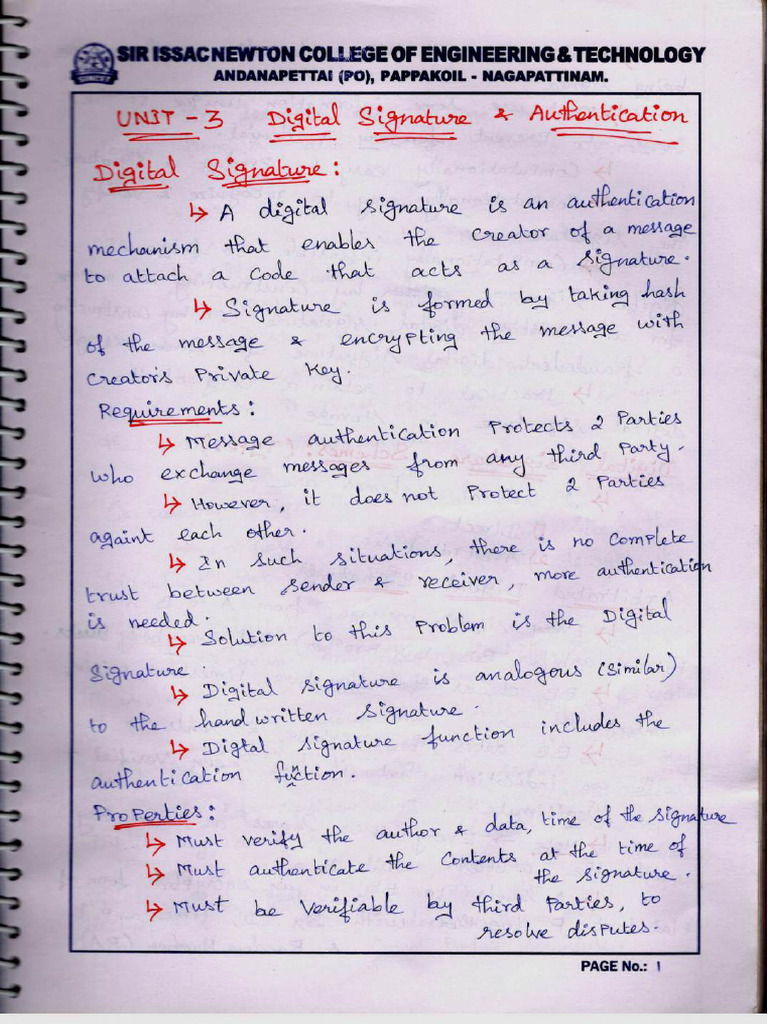 SIR ISSAC NEWTON COLLEGE OF ENGINEERING & TECHNOLOGY
ANDANAPETTAI (PO), PAPPAKOIL - NAGAPATTINAM.
UNIT - 3 Digital Signature & Authentication
Digital Signature :
↳ A digital signature is an authentication
mechanism that enables the creator of a message
to attach a code that acts as a signature.
↳ Signature is formed by taking hash
of the message & encrypting the message with
creator's Private key.
Requirements :
↳ Message authentication Protects 2 Parties
who exchange messages from any third Party.
↳ However, it does not Protect 2 Parties
againt each other.
↳ In such situations, there is no complete
trust between sender & receiver, more authentication
is needed.
↳ Solution to this Problem is the Digital
Signature.
↳ Digital signature is analogous (similar)
to the handwritten signature.
↳ Digtal signature function includes the
authentication function.
Properties :
↳ Must verify the author & data, time of the signature
↳ Must authenticate the contents at the time of
the signature.
↳ Must be verifiable by third Parties, to
resolve disputes.
PAGE No.: 1